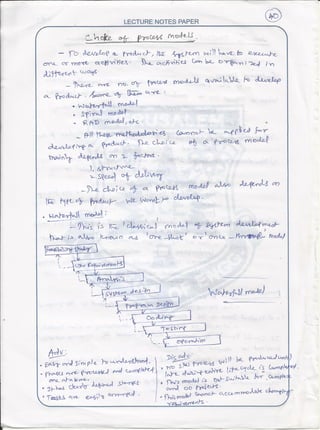 LECTURE NOTES PAPER
40
Choice of process models
- To develop a product, the system will have to execute
one or more activities. The activities can be organized in
different ways
- There are no. of process models available to develop
a product. Some of them are:
• Waterfall model
• Spiral model
• RAD model, etc
- All these methodologies cannot be applied for
developing a product. The choice of a process model
mainly depends on 2 factors.
1. structure
2. Speed of delivery
- The choice of a process model also depends on
the type of product we want to develop.
• Waterfall model:
- This is the 'classical' model of system development
that is also known as 'one-shot' or 'once-through model
Feasibility study
User Requirements
Analysis
System design
Program Design
Coding
Testing
Operation
Waterfall model
Adv:
• Easy and simple to understand.
• Phases are processed and completed
one at a time.
• It has clearly defined stages
• Tasks are easily arranged.
Disadv:
• No s/w process will be produced until
late during entire life cycle is completed
• This model is not suitable for complex
and OO projects.
• This model cannot accommodate changing
requirements.